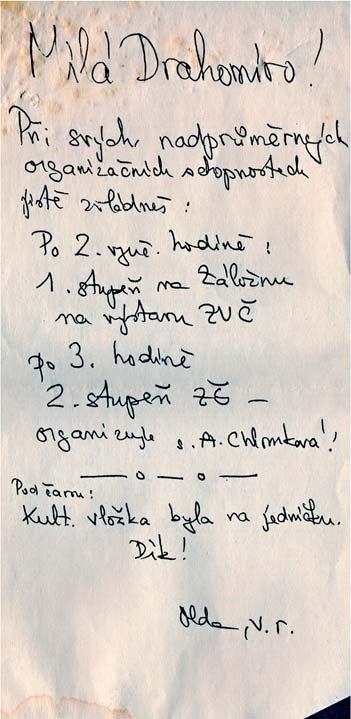 Milá Drahomíro!
Při svých nadprůměrných
organizačních schopnostech
jistě zvládneš:
Po 2. vyuč. hodině:
1. stupeň na Záložnu
na výstavu ZUČ
po 3. hodině
2. stupeň ZŠ –
organizuje s. A. Chlomková!
Pod čarou:
Kult. vložka byla na jedničku.
Dík!
Olda, v. r.